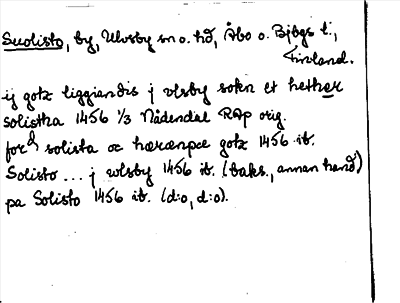 Suolisto, by, Ulvsby sn o. hd, Åbo o. Bjbgs l.,
Finland.
ij gotz liggiandis j vlsby sokn et hether
solistha 1456 1/3 Nådendal RAp orig.
for^d solista oc hærænpæ gotz 1456 ib.
Solisto ... j wlsby 1456 ib. (baks., annan hand)
pa Solisto 1456 ib. (d:o, d:o).